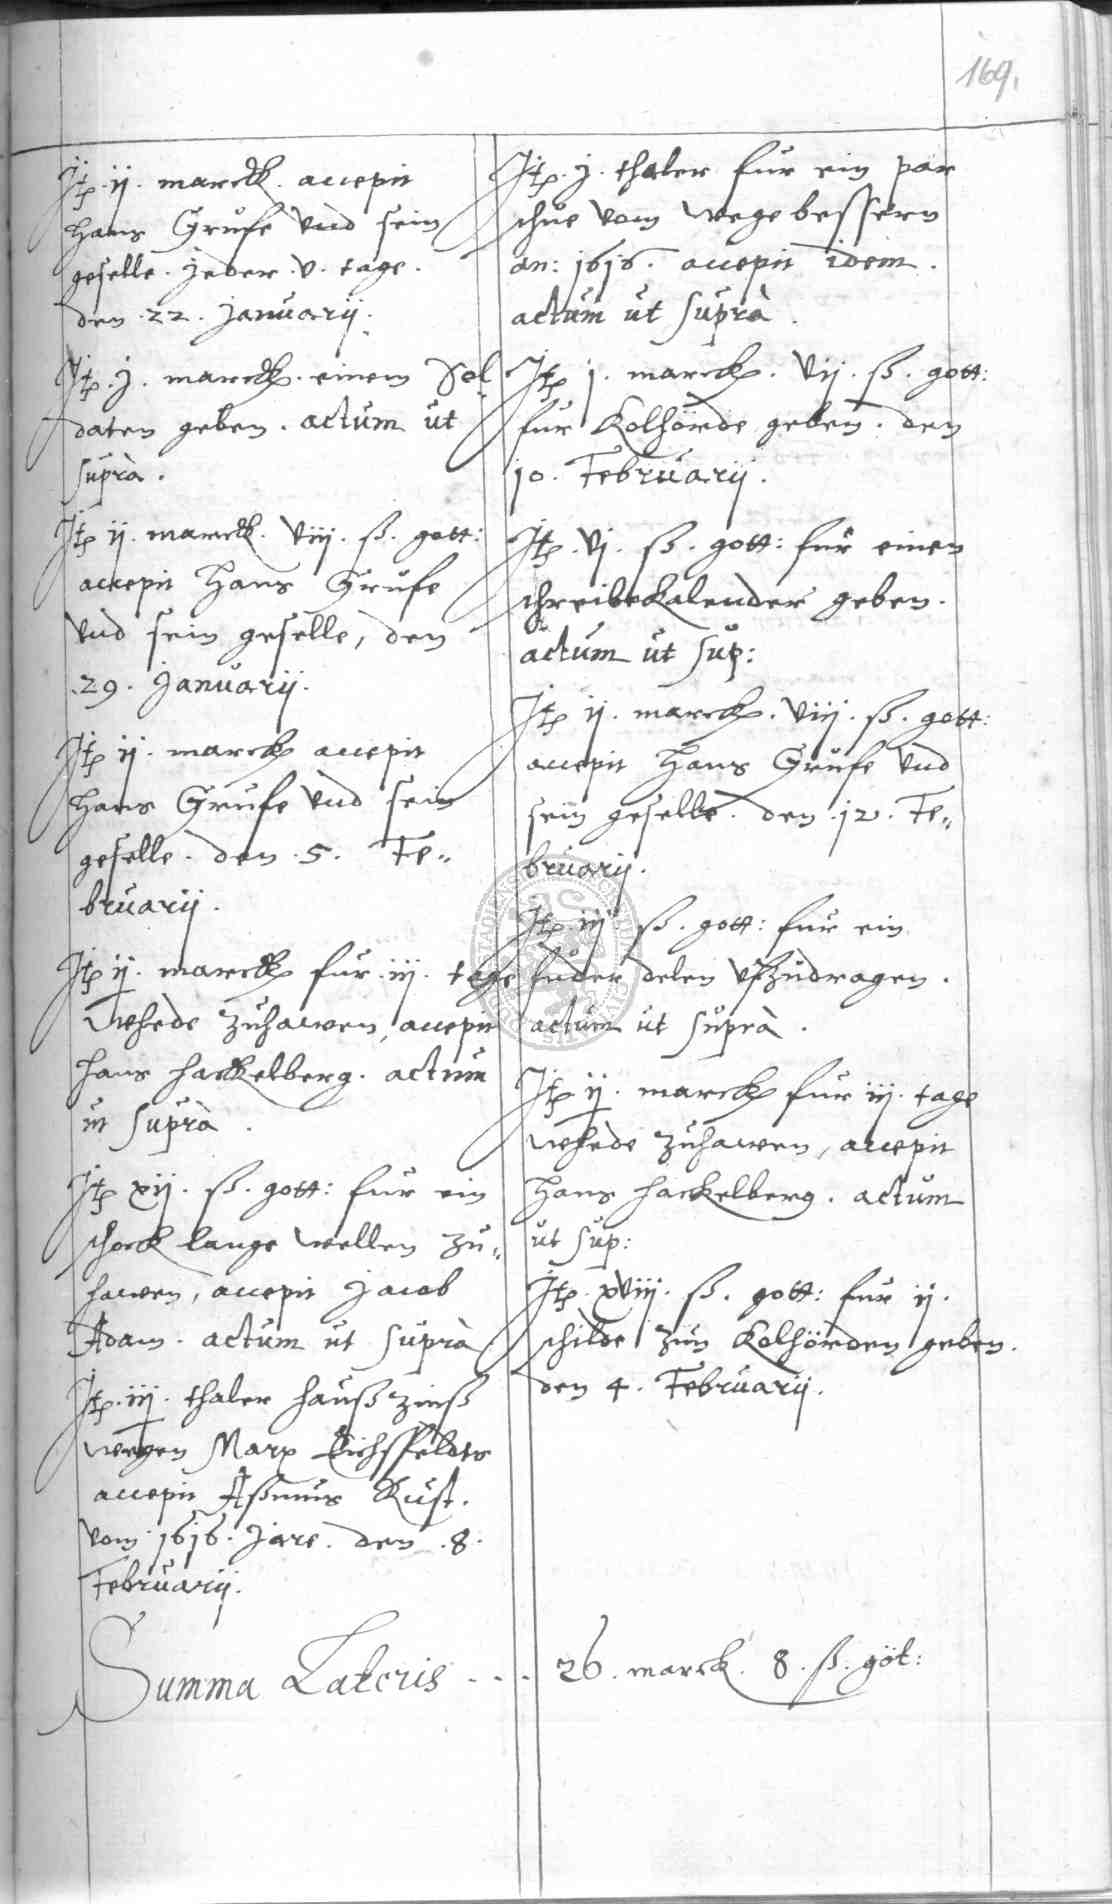 169.
Itp. ij. marck. accepit
Hans Grufe vnd sein
geselle. Jeder. v. tage.
den. 22. Januarij.
Itp. j. marck. einem Sol
daten geben. actum ut
suprà.
Itp ij. marck. viij. ß. gott:
accepit Hans Grufe
vnd sein geselle, den
.29. Januarij.
Itp ij. marck accepit
Hans Grufe vnd sein
geselle. den. 5. Fe„
bruarij.
Itp ij. marck fur. iij. tage
Whede zuhawen, accepit
Hans Hackelberg. actum
ut suprà.
Itp xij. ß. gott: fur ein
schock lange wellen zu„
hawen, accepit Jacob
Adam. actum ut suprà
Itp. iij. thaler hauß zinß
wegen Marx Eichsfeldts
accepit Aßmus Kust.
vom 1616. Jare. den. 8.
Februarij.
Itp. j. thaler fur ein par
schue vom wege bessern
an: 1616. accepit idem.
actum ut suprà.
Itp j. marck. vij. ß. gott:
fur Kolhörde geben. den
10. Februarij.
Itp. vj. ß. gott: fur einen
schreibekalender geben.
actum ut sup:
Itp ij. marck. viij. ß. gott:
accepit Hans Grufe vnd
sein geselle. den. 12. Fe„
bruarij.
Itp. iij ß. gott: fur ein
fuder delen vfzudragen.
actum ut suprà.
Itp ij. marck fur iij. tage
Whede zuhawen, accepit
Hans Hackelberg. actum
ut sup:
Itp. xviij. ß. gott: fur ij.
schilde zun Kolhörden geben.
den 4. Februarij.
Summa Lateris - - - 26. marck. 8. ß. göt: